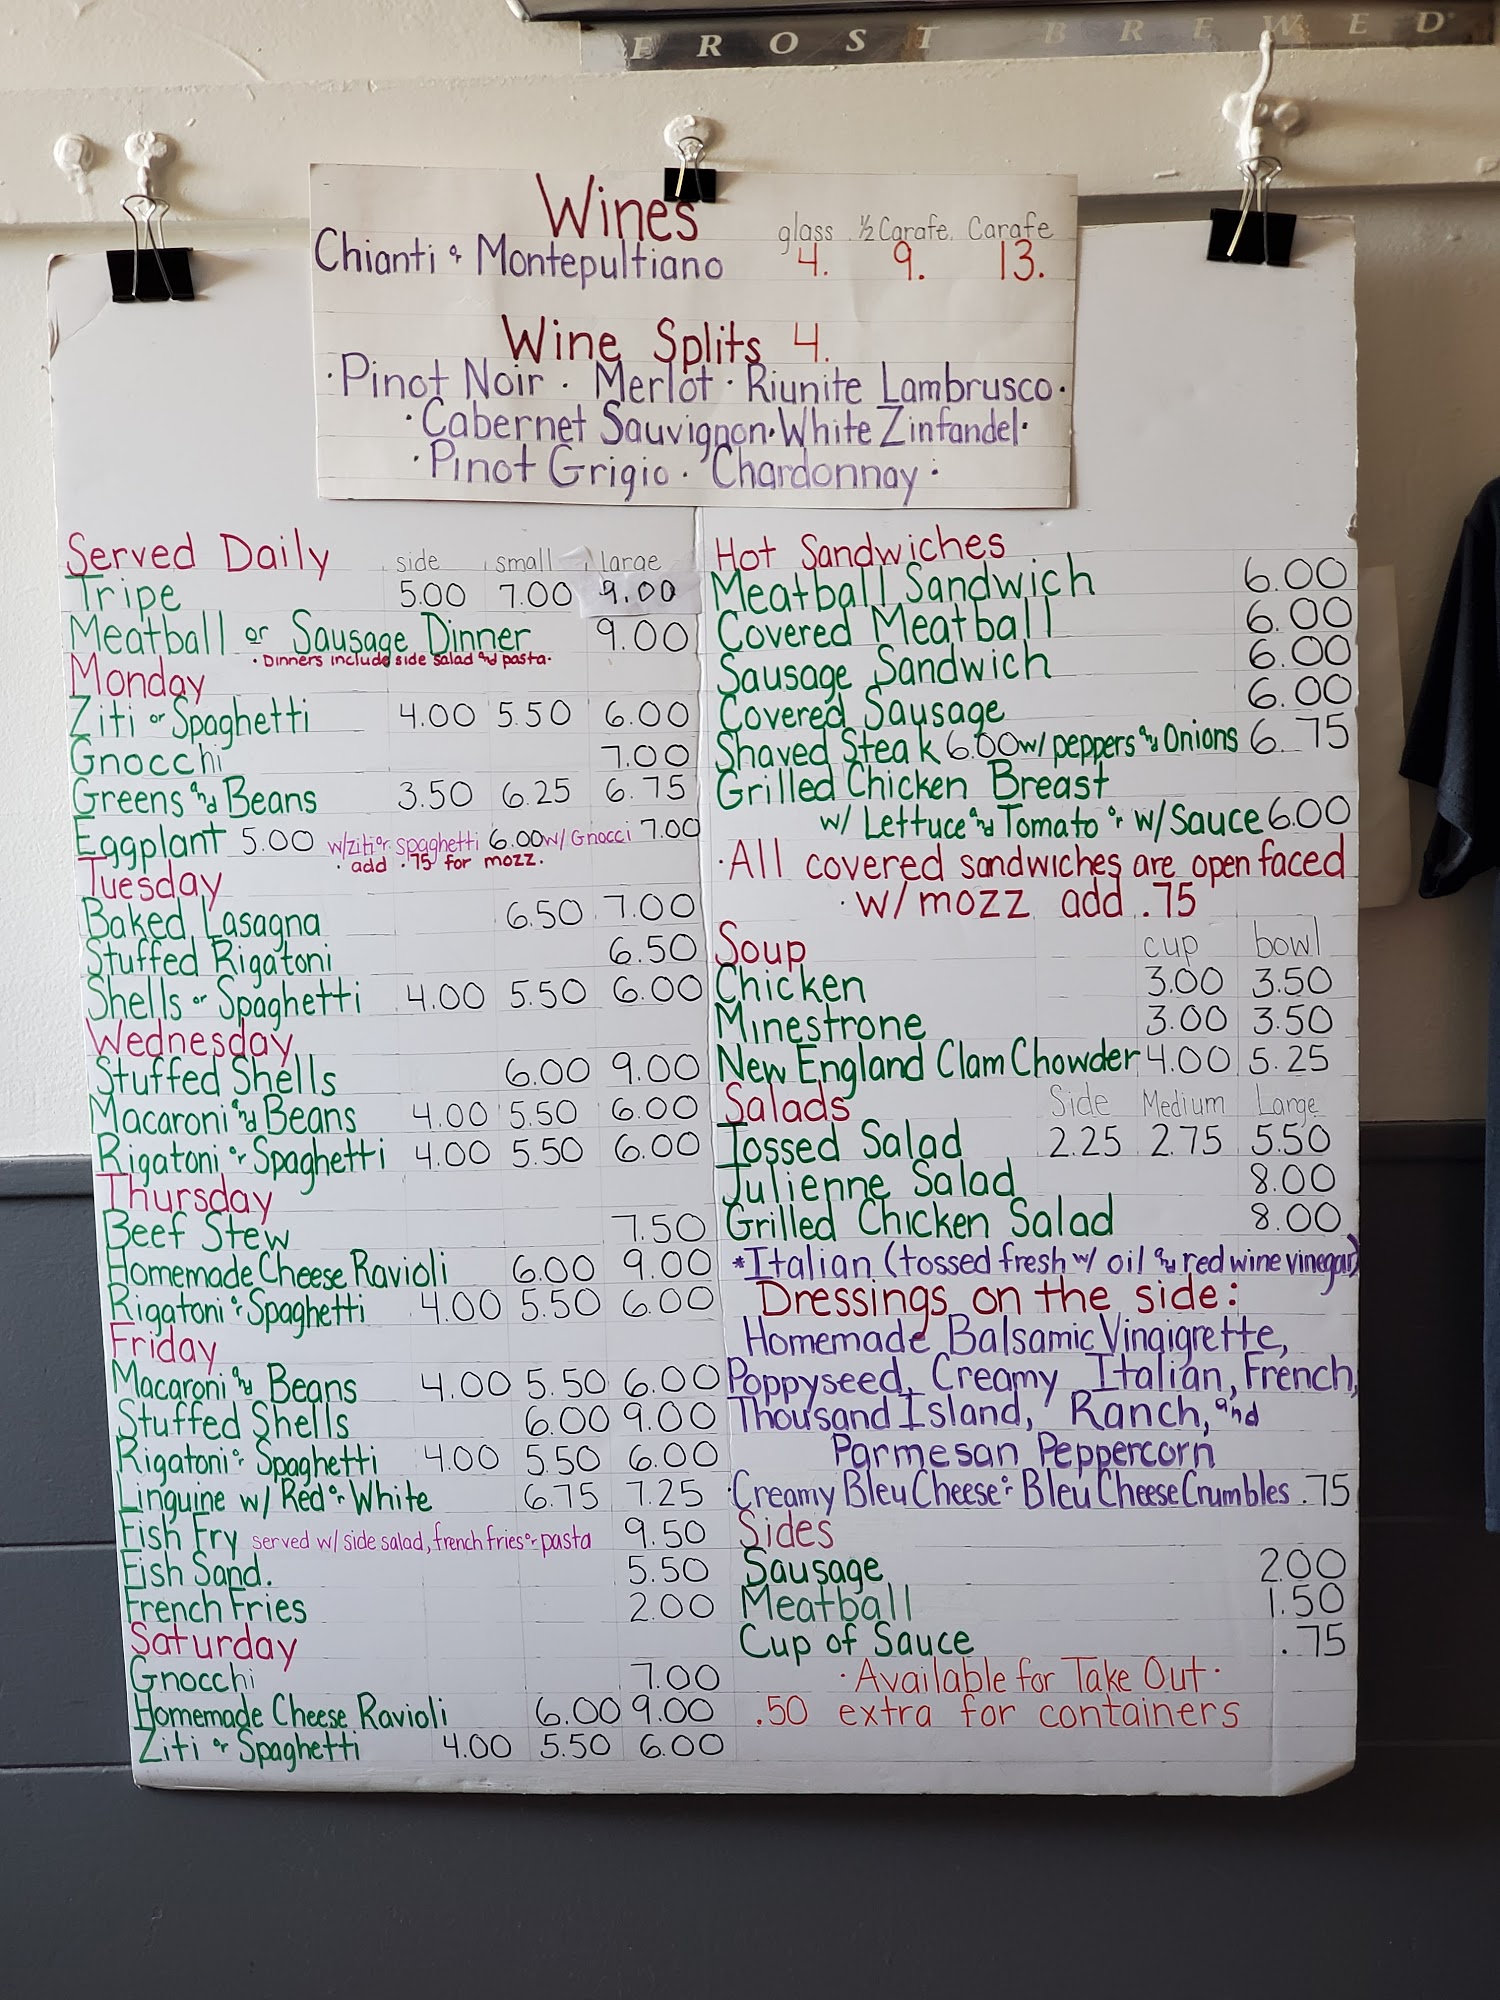 FROST BREWED
Wines
glass ½ Carafe. Carafe
Chianti or Montepultiano 4. 9. 13.
Wine Splits 4.
·Pinot Noir · Merlot · Riunite Lambrusco·
·Cabernet Sauvignon·White Zinfandel·
·Pinot Grigio · Chardonnay ·
Served Daily side small large
Tripe 5.00 7.00 9.00
Meatball or Sausage Dinner 9.00
·Dinners include side salad and pasta·
Monday
Ziti or Spaghetti 4.00 5.50 6.00
Gnocchi 7.00
Greens and Beans 3.50 6.25 6.75
Eggplant 5.00 w/ziti or spaghetti 6.00 w/Gnocci 7.00
· add .75 for mozz.
Tuesday
Baked Lasagna 6.50 7.00
Stuffed Rigatoni 6.50
Shells or Spaghetti 4.00 5.50 6.00
Wednesday
Stuffed Shells 6.00 9.00
Macaroni and Beans 4.00 5.50 6.00
Rigatoni or Spaghetti 4.00 5.50 6.00
Thursday
Beef Stew 7.50
Homemade Cheese Ravioli 6.00 9.00
Rigatoni or Spaghetti 4.00 5.50 6.00
Friday
Macaroni and Beans 4.00 5.50 6.00
Stuffed Shells 6.00 9.00
Rigatoni or Spaghetti 4.00 5.50 6.00
Linguine w/ Red or White 6.75 7.25
Fish Fry served w/ side salad, french fries or pasta 9.50
Fish Sand. 5.50
French Fries 2.00
Saturday
Gnocchi 7.00
Homemade Cheese Ravioli 6.00 9.00
Ziti or Spaghetti 4.00 5.50 6.00
Hot Sandwiches
Meatball Sandwich 6.00
Covered Meatball 6.00
Sausage Sandwich 6.00
Covered Sausage 6.00
Shaved Steak 6.00 w/ peppers and Onions 6.75
Grilled Chicken Breast
w/ Lettuce and Tomato or w/ Sauce 6.00
·All covered sandwiches are open faced
·w/ mozz add .75
Soup cup bowl
Chicken 3.00 3.50
Minestrone 3.00 3.50
New England Clam Chowder 4.00 5.25
Salads Side Medium Large
Tossed Salad 2.25 2.75 5.50
Julienne Salad 8.00
Grilled Chicken Salad 8.00
*Italian (tossed fresh w/ oil and red wine vinegar)
Dressings on the side:
Homemade Balsamic Vinaigrette,
Poppyseed, Creamy Italian, French,
Thousand Island, Ranch, and
Parmesan Peppercorn
·Creamy Bleu Cheese or Bleu Cheese Crumbles .75
Sides
Sausage 2.00
Meatball 1.50
Cup of Sauce .75
·Available for Take Out·
.50 extra for containers